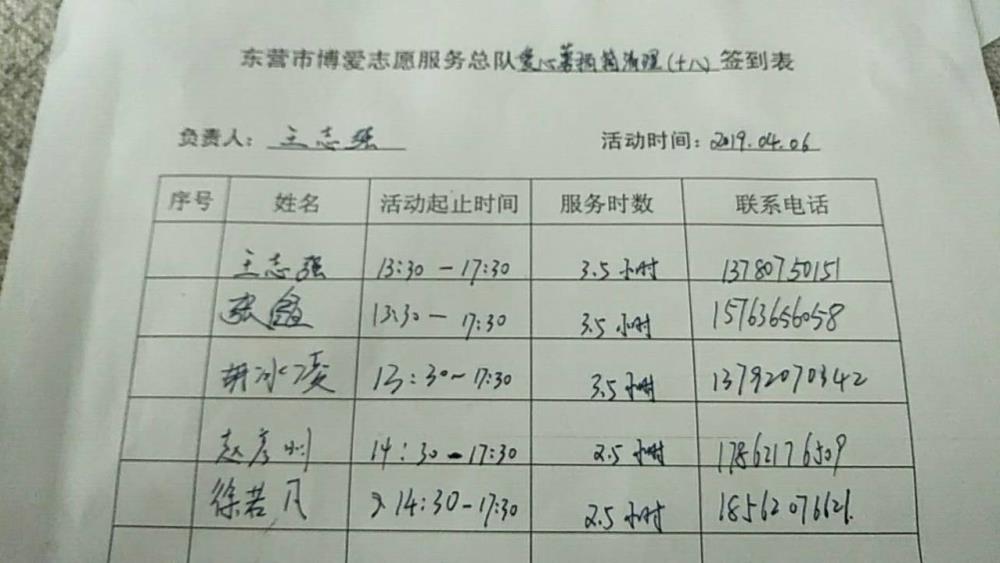 东营市博爱志愿服务总队爱心募捐箱清理(十八)签到表
负责人: 王志强 活动时间: 2019.04.06
序号 姓名 活动起止时间 服务时数 联系电话
王志强 13:30-17:30 3.5小时 13780750151
张 13:30-17:30 3.5小时 15763656058
胡冰凌 13:30~17:30 3.5小时 13792070342
赵彦刚 14:30-17:30 2.5小时 17862176509
徐若凡 14:30-17:30 2.5小时 18562076621.